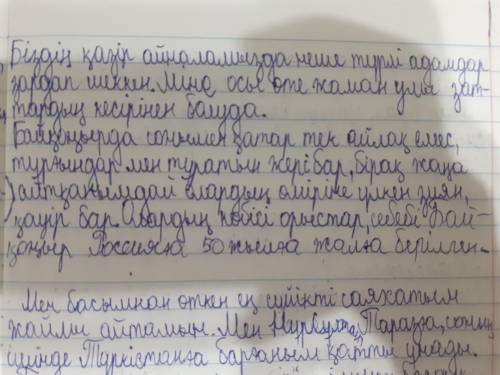 Біздің қазір айналамызда неше түрлі адамдар
зардап шеккен. Міне осы өте жаман улы зат-
тардың кесірінен болуда.
Байқоңырда сонымен қатар тек айлақ емес,
тұрғындар мен тұратын жері бар, бірақ жаңа
айтқанымдай олардың өміріне үлкен зиян,
қауір бар. Олардың көбісі орыстар, себебі Бай-
қоңыр Россияға 50 жылға жалға берілген.
Мен басымнан өткен ең сүйікті саяхатым
жайлы айтамын. Мен Тараза, соның
ішінде Түркістанға барғаным қатты ұнады.